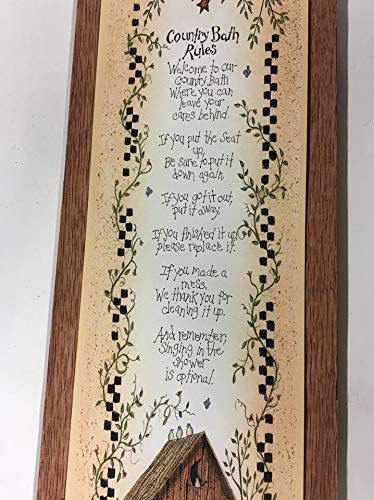 Country Bath
Rules
Welcome to our
Country Bath
Where you can
leave your
cares behind.
If you put the seat
up,
Be sure to put it
down again.
If you got it out,
put it away.
If you finished it up,
please replace it.
If you made a
mess,
We thank you for
cleaning it up.
And remember,
Singing in the
shower
is optional.